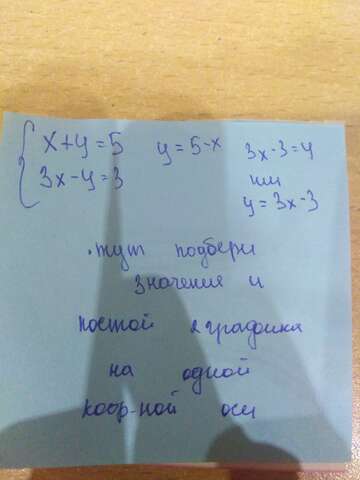 x+y=5 y=5-x 3x-3=y
3x-y=3 или
y=3x-3
тут подбери
значения и
построй 2 графика
на одной
коор-ной оси